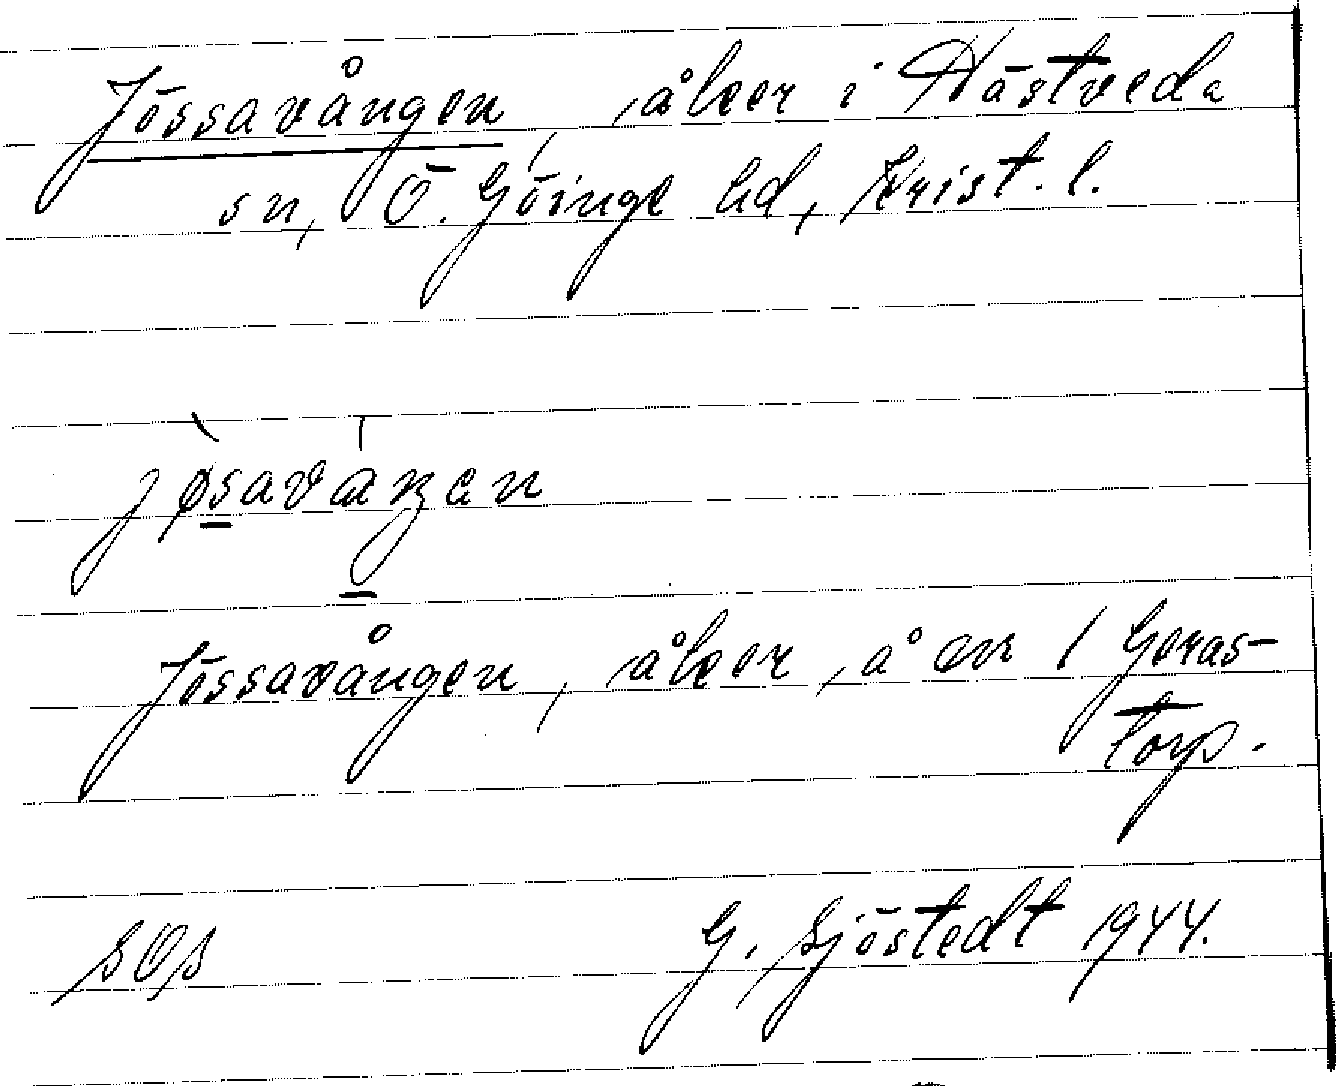 Jössavången, åker i Hästveda
sn, Ö. Göinge hd, Krist. l.
jøsavaŋen
Jössavången, åker, å nr 1 Geras-
torp.
SOS G. Sjöstedt 1944.